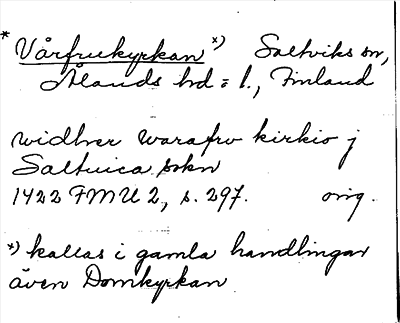 * Vårfrukyrkan *) Saltviks sn,
Ålands hd = l., Finland
widher warafrv kirkio j
Saltuica sokn
1422 FMU 2, s. 297. orig.
*) kallas i gamla handlingar
även Domkyrkan